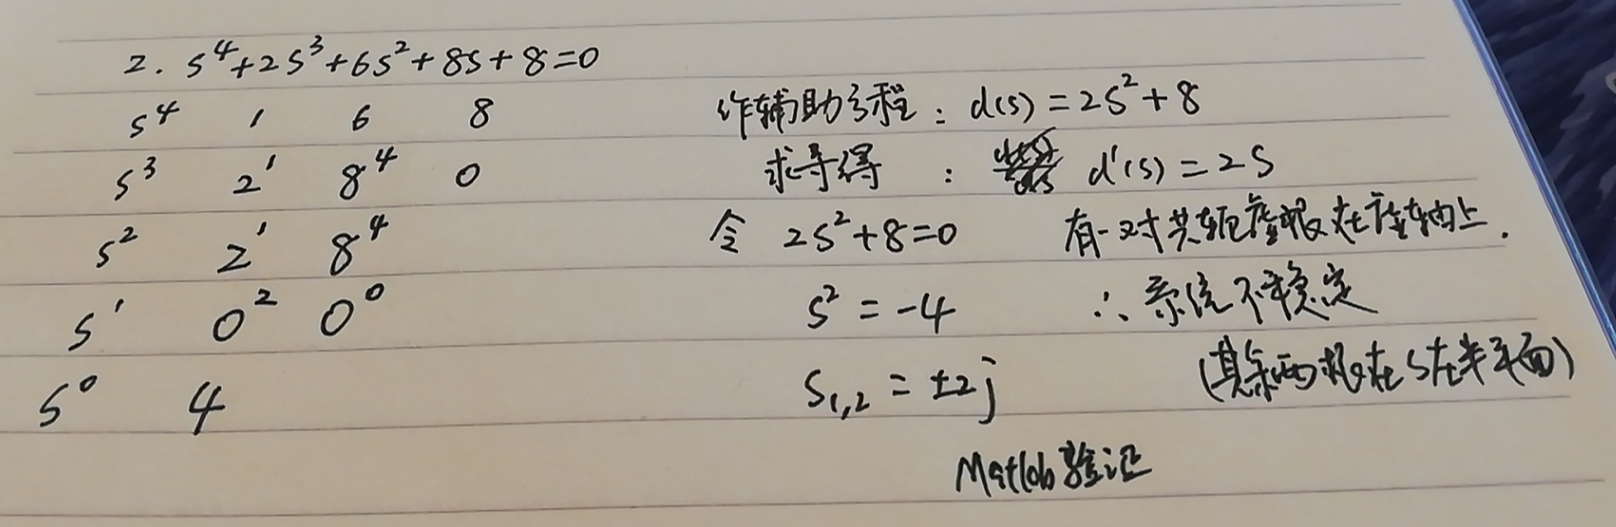 2. s⁴+2s³+6s²+8s+8=0
s⁴ 1 6 8
s³ 2¹ 8⁴ 0
s² 2¹ 8⁴
s¹ 0² 0⁰
s⁰ 4
作辅助方程：d(s)=2s²+8
求导得： d'(s)=2s
令 2s²+8=0 有一对共轭虚根在虚轴上.
s²=-4 ∴系统不稳定
s₁,₂=±2j (其余两根在s左半平面)
Matlab验证